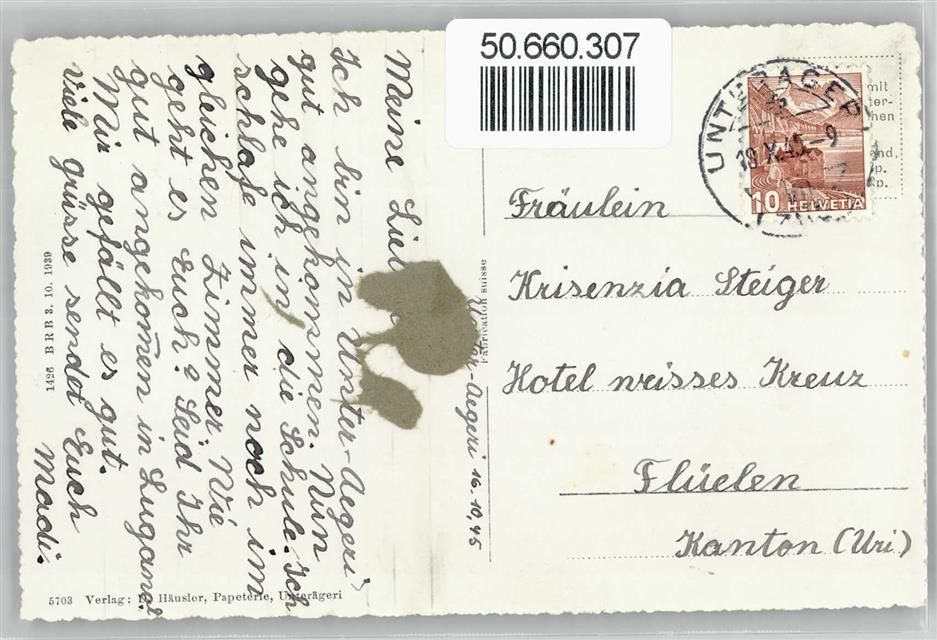 50.660.307
Meine
Ich bin in Unter-Aegeri
gut angekommen. Nun
gehe ich in die Schule. Ich
schlafe immer noch im
gleichen Zimmer. Wie
geht es Euch? Seid Ihr
gut angekom̄en in Lugano?
Mir gefällt es gut.
viele grüsse sendet Euch
Madi.
Unter-Aegeri 16.10.45
Fabrication suisse
1426 BRB 3. 10. 1939
5703 Verlag: Häusler, Papeterie, Unterägeri
UNTERÄGERI
X.45-9
10 HELVETIA
mit
hen
Fräulein
Krisenzia Steiger
Hotel weisses Kreuz
Flüelen
Kanton (Uri)